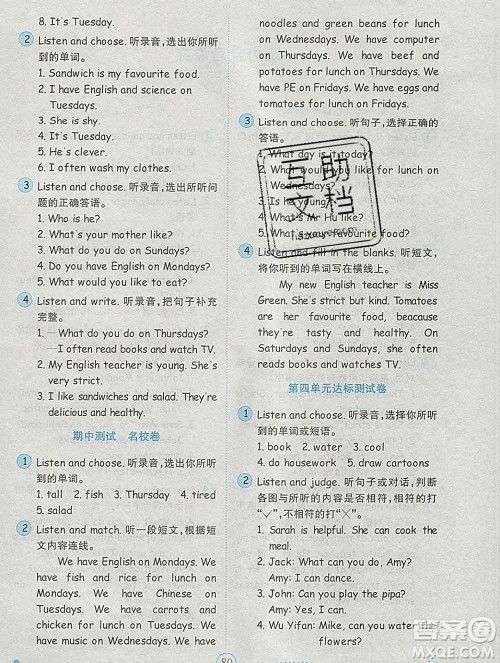 8. It's Tuesday.
2 Listen and choose. 听录音,选出你所听
到的单词。
1. Sandwich is my favourite food.
2. I have English and science on
Tuesdays.
3. She is shy.
4. It's Tuesday.
5. He's clever.
6. I often wash my clothes.
3 Listen and choose. 听录音,选出所听问
题的正确答语。
1. Who is he?
2. What's your mother like?
3. What do you do on Sundays?
4. Do you have English on Mondays?
5. What would you like to eat?
4 Listen and write. 听录音,把句子补充
完整。
1. —What do you do on Thursdays?
—I often read books and watch TV.
2. My English teacher is young. She's
very strict.
3. I like sandwiches and salad.
4. I often read books and watch TV.
期中测试 名校卷
1 Listen and choose. 听录音,选出你所听
到的单词。
1. tall 2. fish 3. Thursday 4. tired
5. salad
2 Listen and match. 听一段短文,根据短
文内容连线。
We have English on Mondays. We
have fish and rice for lunch on
Mondays. We have Chinese on
Tuesdays. We have carrots and
chicken for lunch on Tuesdays. We
have music on Wednesdays. We have
noodles and green beans for lunch on
Wednesdays. We have computer
on Thursdays. We have beef and
potatoes for lunch on Thursdays. We
have PE on Fridays. We have eggs and
tomatoes for lunch on Fridays.
3 Listen and choose. 听句子,选择正确的
答语。
1. What day is it today?
2. What would you like for lunch on
Wednesdays?
3. Is he young?
4. What's Mr Hu like?
5. What's favourite food?
4 Listen and fill in the blanks. 听短文,
将你听到的单词写在横线上。
My new English teacher is Miss
Green. She's strict but kind. Tomatoes
are her favourite food, because they
are fresh, tasty and healthy. On
Saturdays and Sundays, we often
watch TV.
第四单元达标测试卷
1 Listen and choose. 听录音,选择你所听
到的单词或短语。
1. book 2. water 3. cool
4. do housework 5. draw cartoons
2 Listen and judge. 听句子或对话,判断
各图与所听内容是否相符,相符的打
“✓”,不相符的打“×”。
1. Sarah is helpful. She can cook
the meal.
2. Jack: What can you do, Amy?
Amy: I can dance.
3. John: Can you play the pipa?
Amy: Yes, I can.
4. Wu Yifan: Mike, can you water the
flowers?
80
互助
文档
答案圈
MXQE.COM